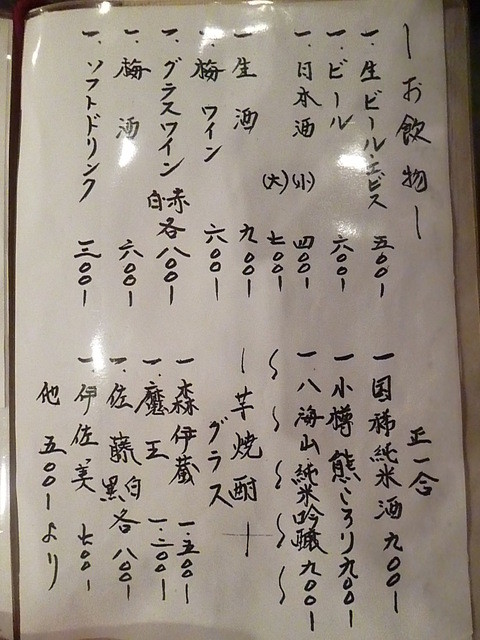 ーお飲物ー
一.生ビール・エビス 五〇〇ー
一.ビール 六〇〇ー
一.日本酒 (小) 四〇〇ー
(大) 七〇〇ー
一 生酒 九〇〇ー
一.梅ワイン 六〇〇ー
一.グラスワイン 赤白各八〇〇ー
一.梅酒 六〇〇ー
一.ソフトドリンク 三〇〇ー
正一合
一 国稀純米酒 九〇〇ー
一 小樽熊ころり 九〇〇ー
一 八海山純米吟醸 九〇〇ー
〜〜〜〜〜
ー芋焼酎ー
グラス
一 森伊蔵 一.五〇〇ー
一.魔王 一.二〇〇ー
一.佐藤 白黒各八〇〇ー
一.伊佐美 七〇〇ー
他 五〇〇ーより